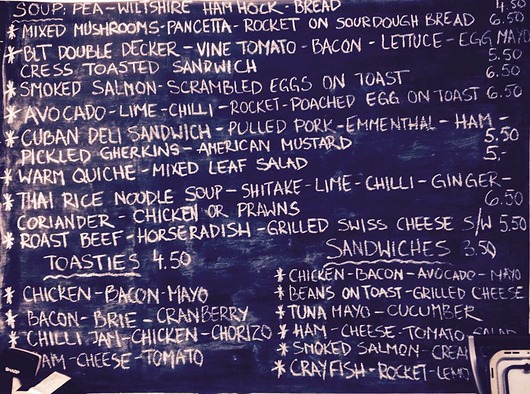 SOUP: PEA - WILTSHIRE HAM HOCK - BREAD 4.50
* MIXED MUSHROOMS - PANCETTA - ROCKET ON SOURDOUGH BREAD 6.50
* BLT DOUBLE DECKER - VINE TOMATO - BACON - LETTUCE - EGG MAYO
CRESS TOASTED SANDWICH 5.50
* SMOKED SALMON - SCRAMBLED EGGS ON TOAST 6.50
* AVOCADO - LIME - CHILLI - ROCKET - POACHED EGG ON TOAST 6.50
* CUBAN DELI SANDWICH - PULLED PORK - EMMENTHAL - HAM -
PICKLED GHERKINS - AMERICAN MUSTARD 5.50
* WARM QUICHE - MIXED LEAF SALAD 5.-
* THAI RICE NOODLE SOUP - SHITAKE - LIME - CHILLI - GINGER -
CORIANDER - CHICKEN OR PRAWNS 6.50
* ROAST BEEF - HORSERADISH - GRILLED SWISS CHEESE S/W 5.50
TOASTIES 4.50
* CHICKEN - BACON - MAYO
* BACON - BRIE - CRANBERRY
* CHILLI JAM - CHICKEN - CHORIZO
HAM - CHEESE - TOMATO
SANDWICHES 3.50
* CHICKEN - BACON - AVOCADO - MAYO
* BEANS ON TOAST - GRILLED CHEESE
* TUNA MAYO - CUCUMBER
* HAM - CHEESE - TOMATO SALAD
* SMOKED SALMON -
* CRAYFISH - ROCKET -
SHARP